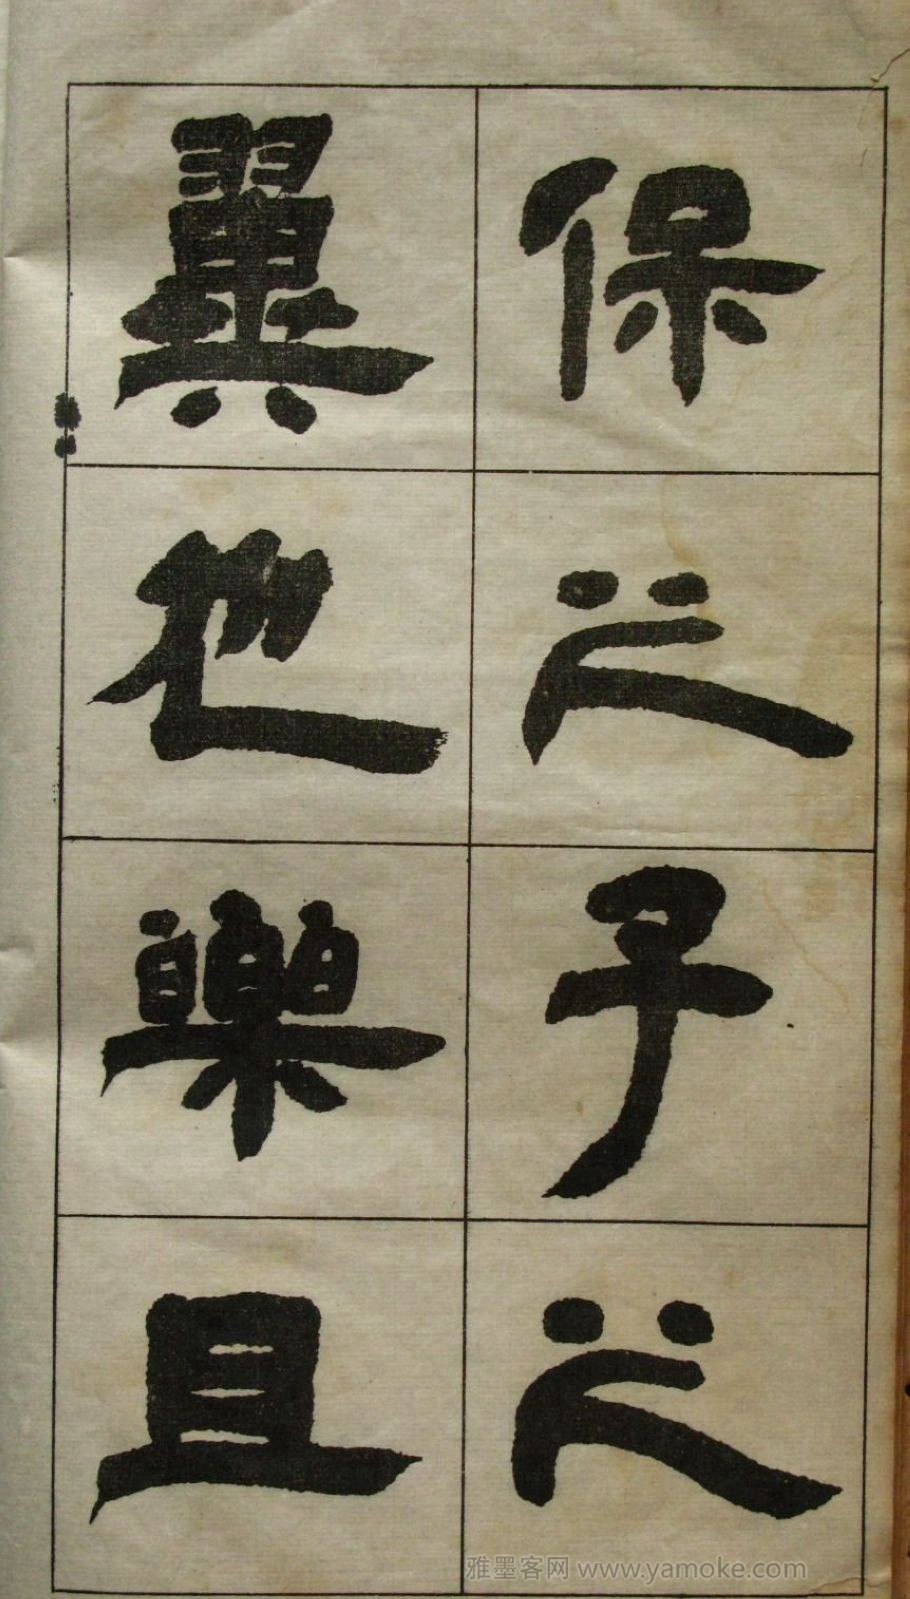 保之子之
翼也樂且
雅墨客网 www.yamoke.com